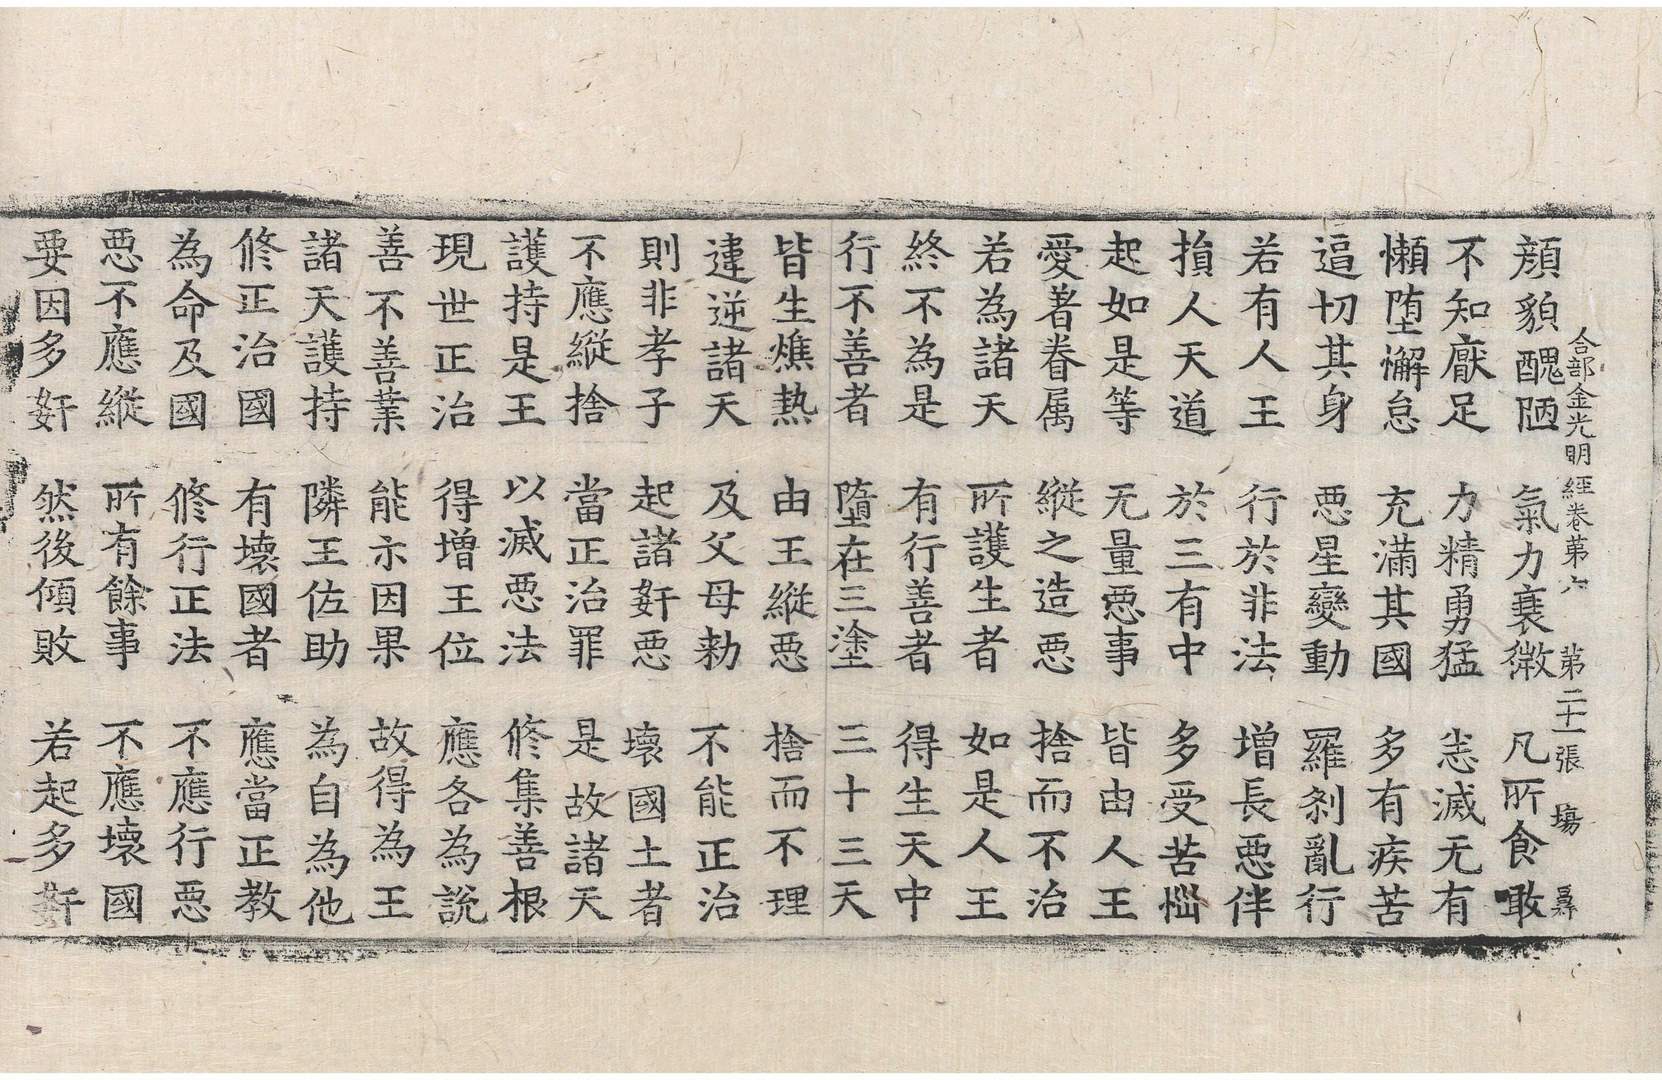 合部金光明經卷第六 第二十一張 塲
顔貌醜陋 氣力衰微 凡所食噉
不知厭足 力精勇猛 悉滅无有
懶堕懈怠 充滿其國 多有疾苦
逼切其身 惡星變動 羅剎亂行
若有人王 行於非法 增長惡伴
損人天道 於三有中 多受苦惱
起如是等 无量惡事 皆由人王
愛著眷属 縱之造惡 捨而不治
若為諸天 所護生者 如是人王
終不為是 有行善者 得生天中
行不善者 墮在三塗 三十三天
皆生燋熱 由王縱惡 捨而不理
違逆諸天 及父母勑 不能正治
則非孝子 起諸姧惡 壞國土者
不應縱捨 當正治罪 是故諸天
護持是王 以滅惡法 修集善根
現世正治 得增王位 應各為說
善不善業 能示因果 故得為王
諸天護持 隣王佐助 為自為他
修正治國 有壞國者 應當正教
為命及國 修行正法 不應行惡
惡不應縱 所有餘事 不應壞國
要因多姧 然後傾敗 若起多姧